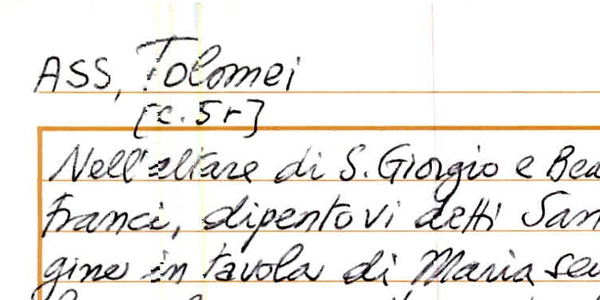 ASS, Tolomei
[c. 5r]
Nell'altare di S. Giorgio e Bea
Franci, dipentovi detti San
gine in tavola di Maria sem